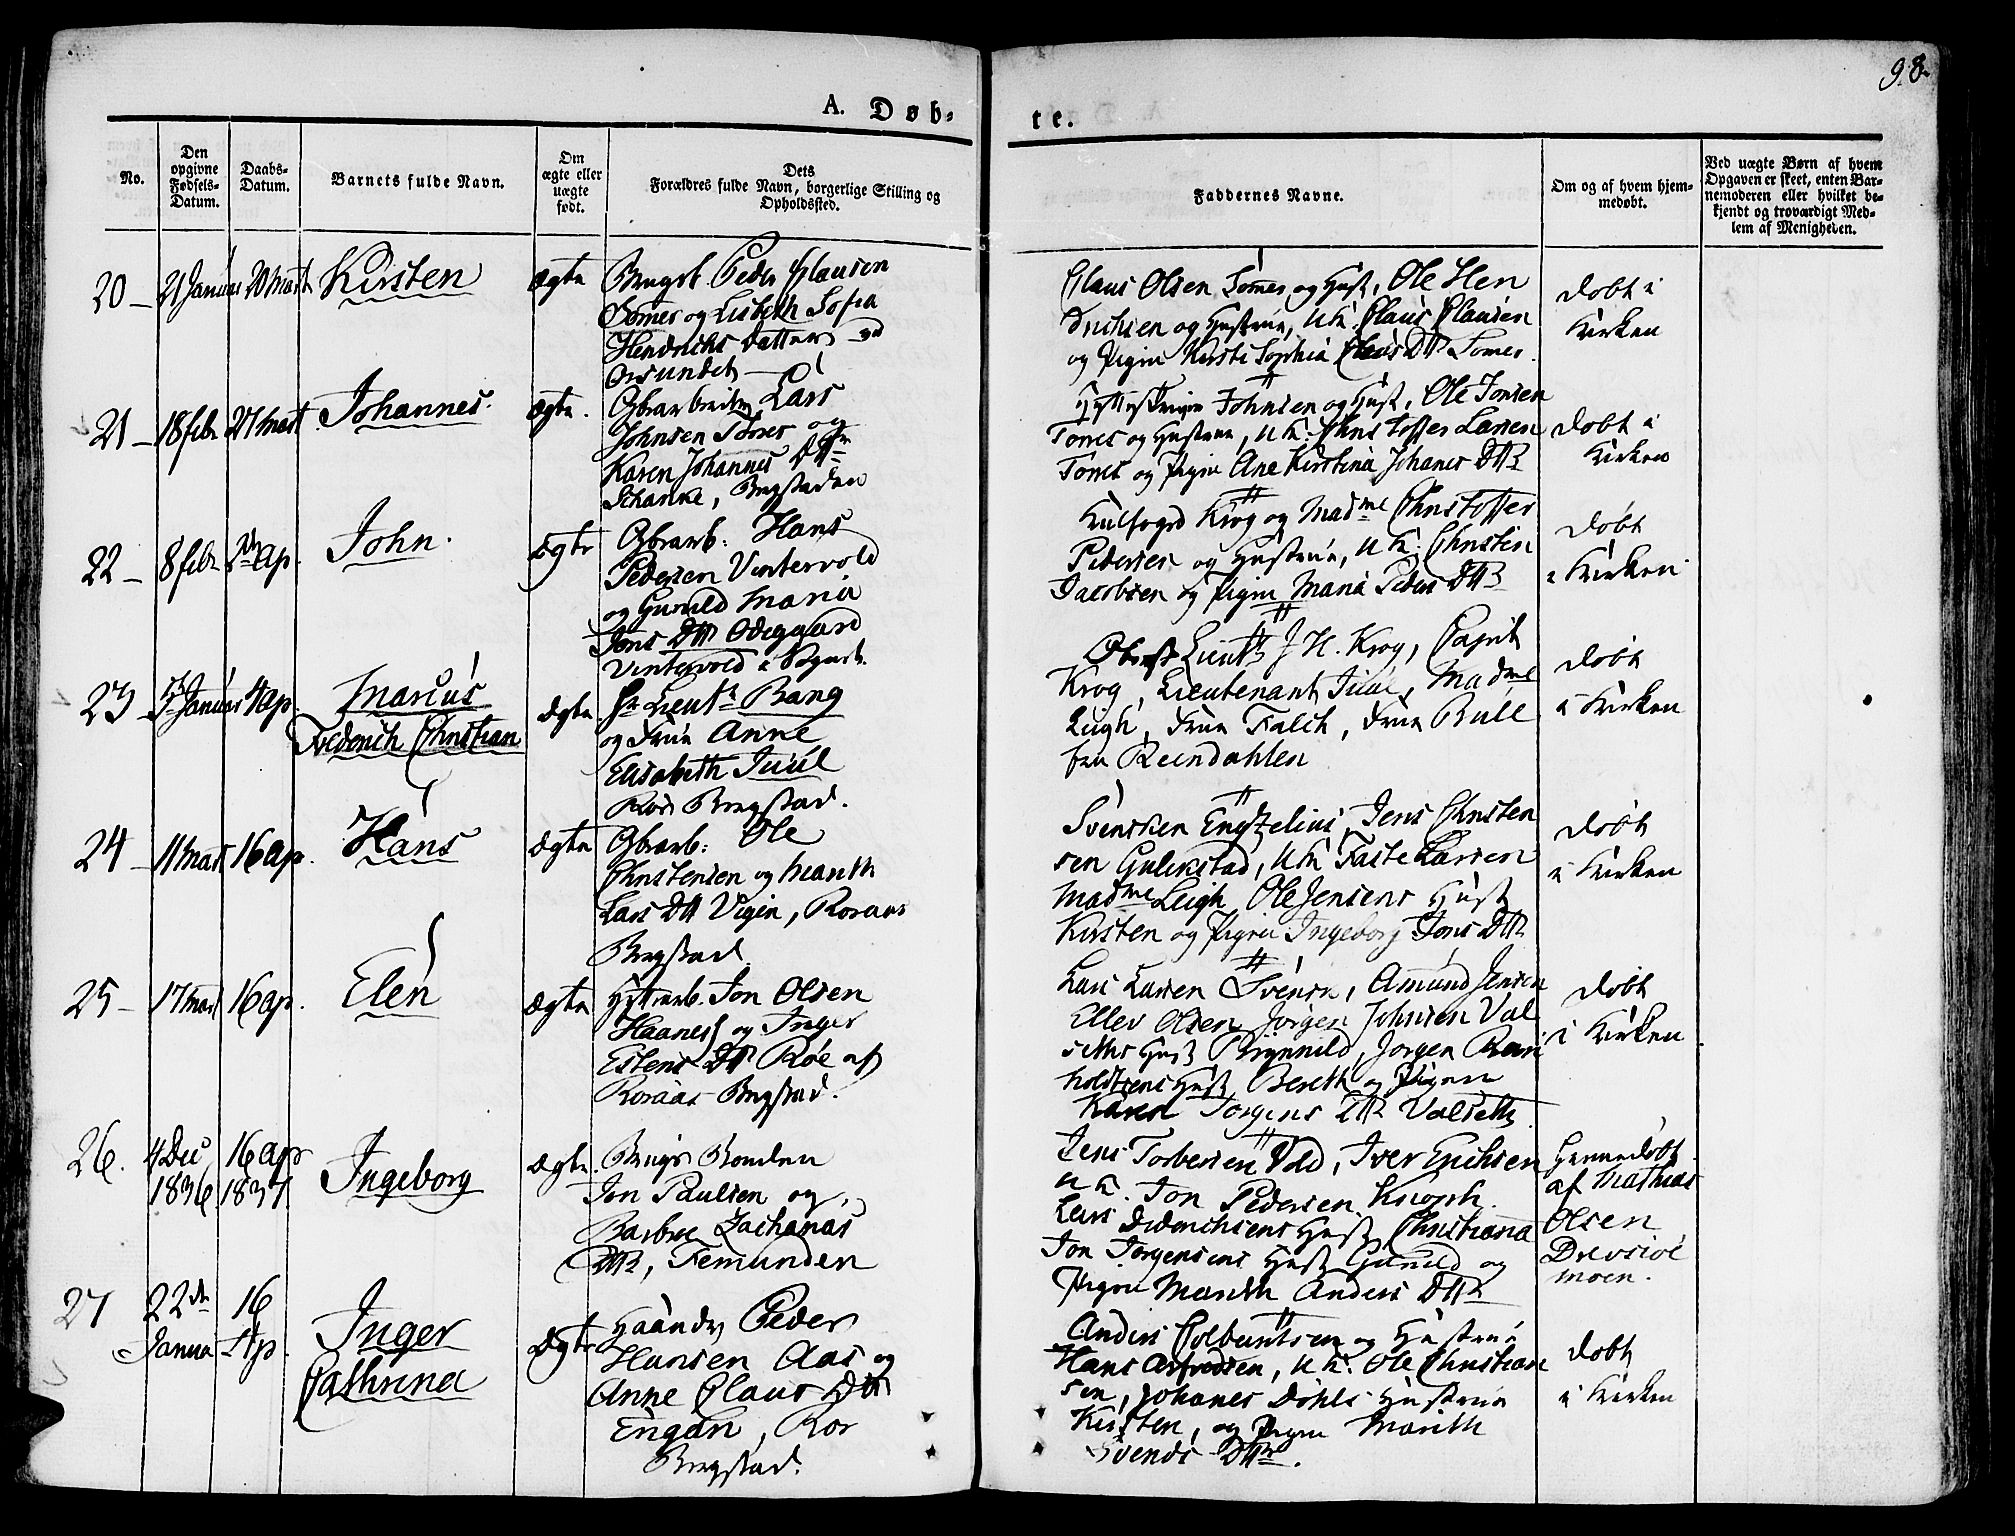 98.
A. Døb-
te.
No.
Den opgivne Fødsels-Datum.
Daabs-Datum.
Barnets fulde Navn.
Om ægte eller uægte født.
Dets
Forældres fulde Navn, borgerlige Stilling og
Opholdssted.
Faddernes Navne.
Om og af hvem hjem-
medøbt.
Ved uægte Børn af hvem
Opgaven er skeet, enten Bar-
nemoderen eller hvilket be-
kjendt og troværdigt Med-
lem af Menigheden.
20 – 21 Januar 20 Mart Kirsten ægte
Peder Clausen
Sömes og Lisbeth Sofia
Hendrichs Datter
Claus Olsen Sömes og Hust, Ole Hen
drichsen og Hustrue, UK. Claus Clausen
og Pigen Kirsti Sophia Claus Dttr Somes.
døbt i
Kirken
21 – 18 febr 27 Mart Johannes. ægte.
Gbrarbeider Lars
Johnsen Torres og
Karen Johannes Dttr
Schanke, Bergstaden
Johnsen og Hust, Ole Jonsen
Torres og Hustrue, UK. Christoffer Larsen
Torres og Pigen Ane Kirstina Johanes Dttr
døbt i
Kirken
22 – 8 febr 2den ap. John. ægte
Gbrarb. Hans
Pedersen Vintervold
og Gunild Maria
Jons Dttr Odegaard
Vintervold i Bergst.
Krog og Madme Christoffer
Pedersen og Hustrue, UK. Christen
Jacobsen og Pigen Maria Peders Dttr
døbt
i Kirken
23 5 Januar 4 ap. Marius
Frederich Christian
ægte
Hr Lieutn Bang
og Frue Anne
Elisabeth Juul
Rör Bergstad.
Oberst Lieutn J H. Krog, Capit
Krog, Lieutenant Juul, Madme
Leigh, Frue Falch, Frue Bull
frn Reindahlen
døbt
i Kirken
24 – 11 Mars 16 ap. Hans ægte
Gbrarb: Ole
Christensen og Marith
Lars Dtt Vigen, Roraas
Bergstad.
Svensken Engzelius, Jens Christen
sen Gulikstad, UK Faste Larsen
Madme Leigh, Ole Jensens Hust
Kirsten og Pigen Ingeborg Jons Dttr
døbt
i Kirken
25 – 17 Mars 16 ap. Elen ægte
Hytarb. Jon Olsen
Haanes og Inger
Estens Dttr Röe af
Roraas Bergstad.
Lars Larsen Svensk, Amund Jensen
Ellev Olsen, Jörgen Johnsen Val
seths Hust Brynnild, Jorgen Rein
holdtsens Hust Bereth og Pigen
Karen Jorgens Dttr Valseth.
døbt
i Kirken
26. 4 Dec
1836
16 ap
1837. Ingeborg ægte.
Brugs Bonden
Jon Paulsen og
Barbroe Zacharias
Dttr, Femunden
Jens Torbersen Vold, Iver Erichsen
UK. Jon Pedersen Knoph.
Lars Diderichsens Hust Christiana
Jon Jorgensens Hust Gunild og
Pigen Marith Anders Dttr
Hiemedøbt
af Mathias
Olsen
Drevsiöe
moen.
27 22de
Janua
16
Ap. Inger
Cathrina
ægte
Haandv Peder
Hansen Aas og
Anne Claus Dtt
Engan, Ror
Bergstad.
Anders Colbentsen og Hustrue
Hans Arfredsen, UK. Ole Christian
sen, Johanes Dohls Hustrue
Kirsten, og Pigen Marith
Svends Dttr.
døbt
i Kirken